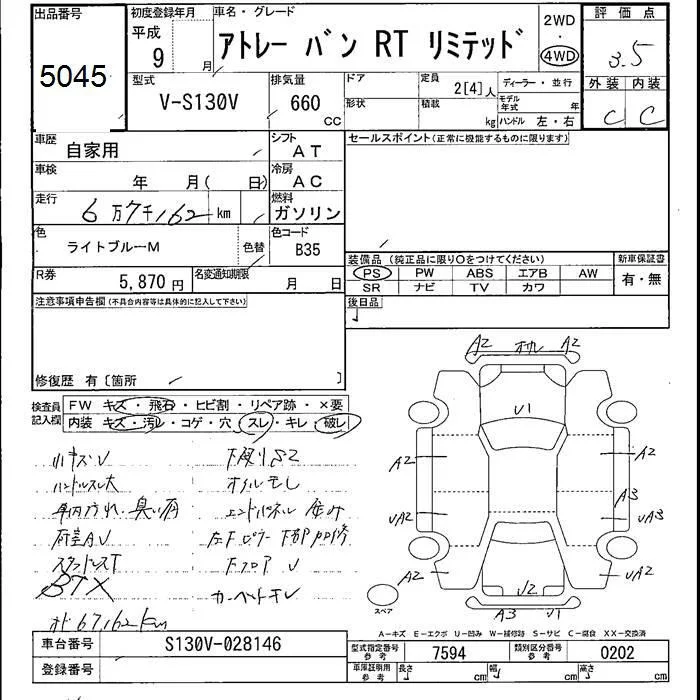 出品番号 初度登録年月 車名・グレード 評価点
5045 平成 9 月 アトレー バン RT リミテッド 2WD ・ 4WD 3.5
型式 排気量 ドア 定員 ディーラー・並行 外装 内装
V-S130V 660 CC 形状 積載 2[4]人 kg モデル年式 年 ハンドル 左・右 C C
車歴 自家用 シフト AT セールスポイント(正常に機能するものに限ります)
車検 年 月( 日) 冷房 AC
走行 6万7千162 km 燃料 ガソリン
色 ライトブルーM 色替 色コード B35
装備品(純正品に限り○をつけてください) 新車保証書
R券 5,870円 名変通知期限 月 日 PS PW ABS エアB AW 有・無
SR ナビ TV カワ
注意事項申告欄(不具合内容等は具体的に記入して下さい) 後日品
修復歴 有〔箇所 〕
検査員記入欄 FW キズ・飛石・ヒビ割・リペア跡・×要
内装 キズ・汚レ・コゲ・穴・スレ・キレ・破レ
A2 A2
U1
A2 A2
UA2 A3 UA3
A2 U2 UA2
A3 U1
小キズU 下廻りS2
ハンドルスレ大 オイルモレ
車内汚れ、臭い有
荷室AU
BTX フロア U
メ 67,162km カーペットキレ
スペア
A-キズ E-エクボ U-凹み W-補修跡 S-サビ C-腐食 XX-交換済
車台番号 S130V-028146 型式指定番号 参考 7594 類別区分番号 参考 0202
登録番号 車庫証明用 参考 長さ cm 幅 cm 高さ cm